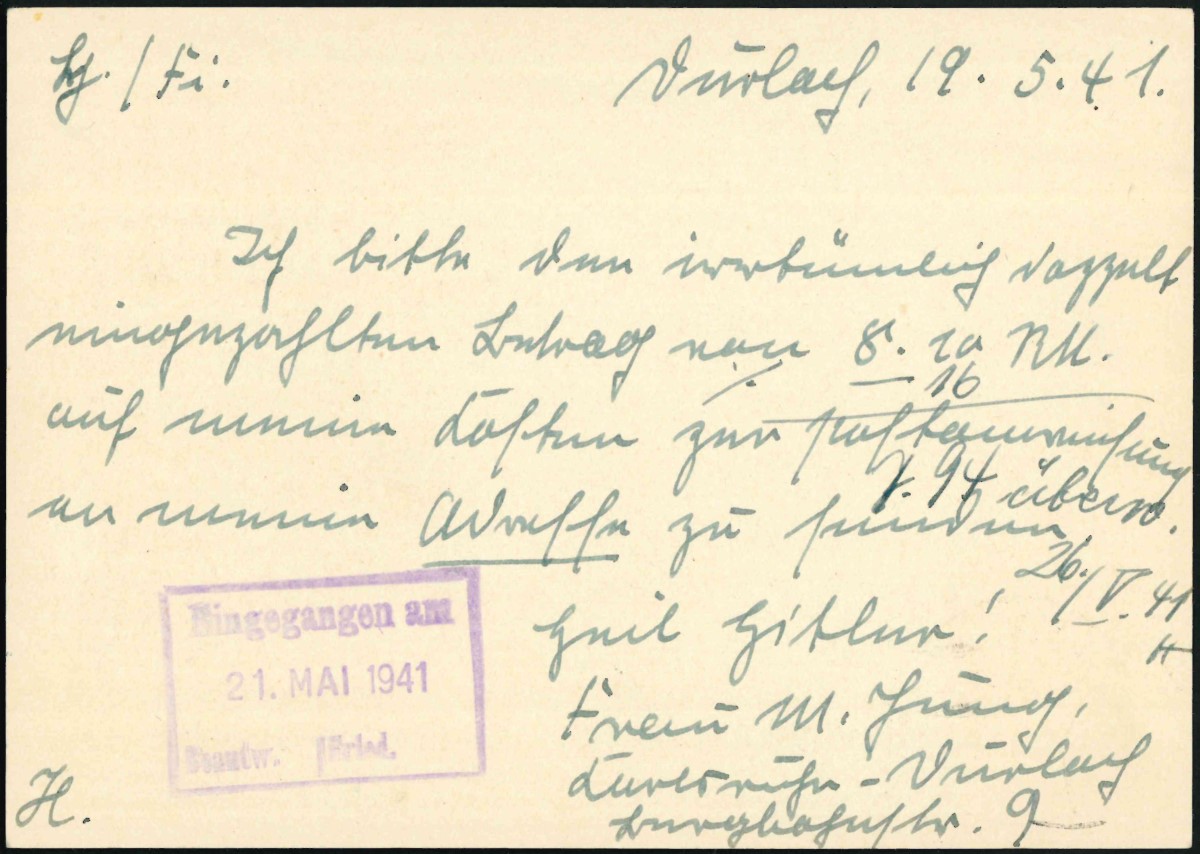 Hg. / Fi.
Durlach, 19. 5. 41.
Ich bitte den irrtümlich doppelt
eingezahlten Betrag von 8.10 RM.
./. 16
auf meine Kosten zur Postanweisung
7.94 überw.
an meine Adresse zu senden
26./V. 41
Heil Hitler!
Frau M. Jung,
Karlsruhe-Durlach
Bergbahnstr. 9
Eingegangen am
21. MAI 1941
Beantw. Erled.
H.